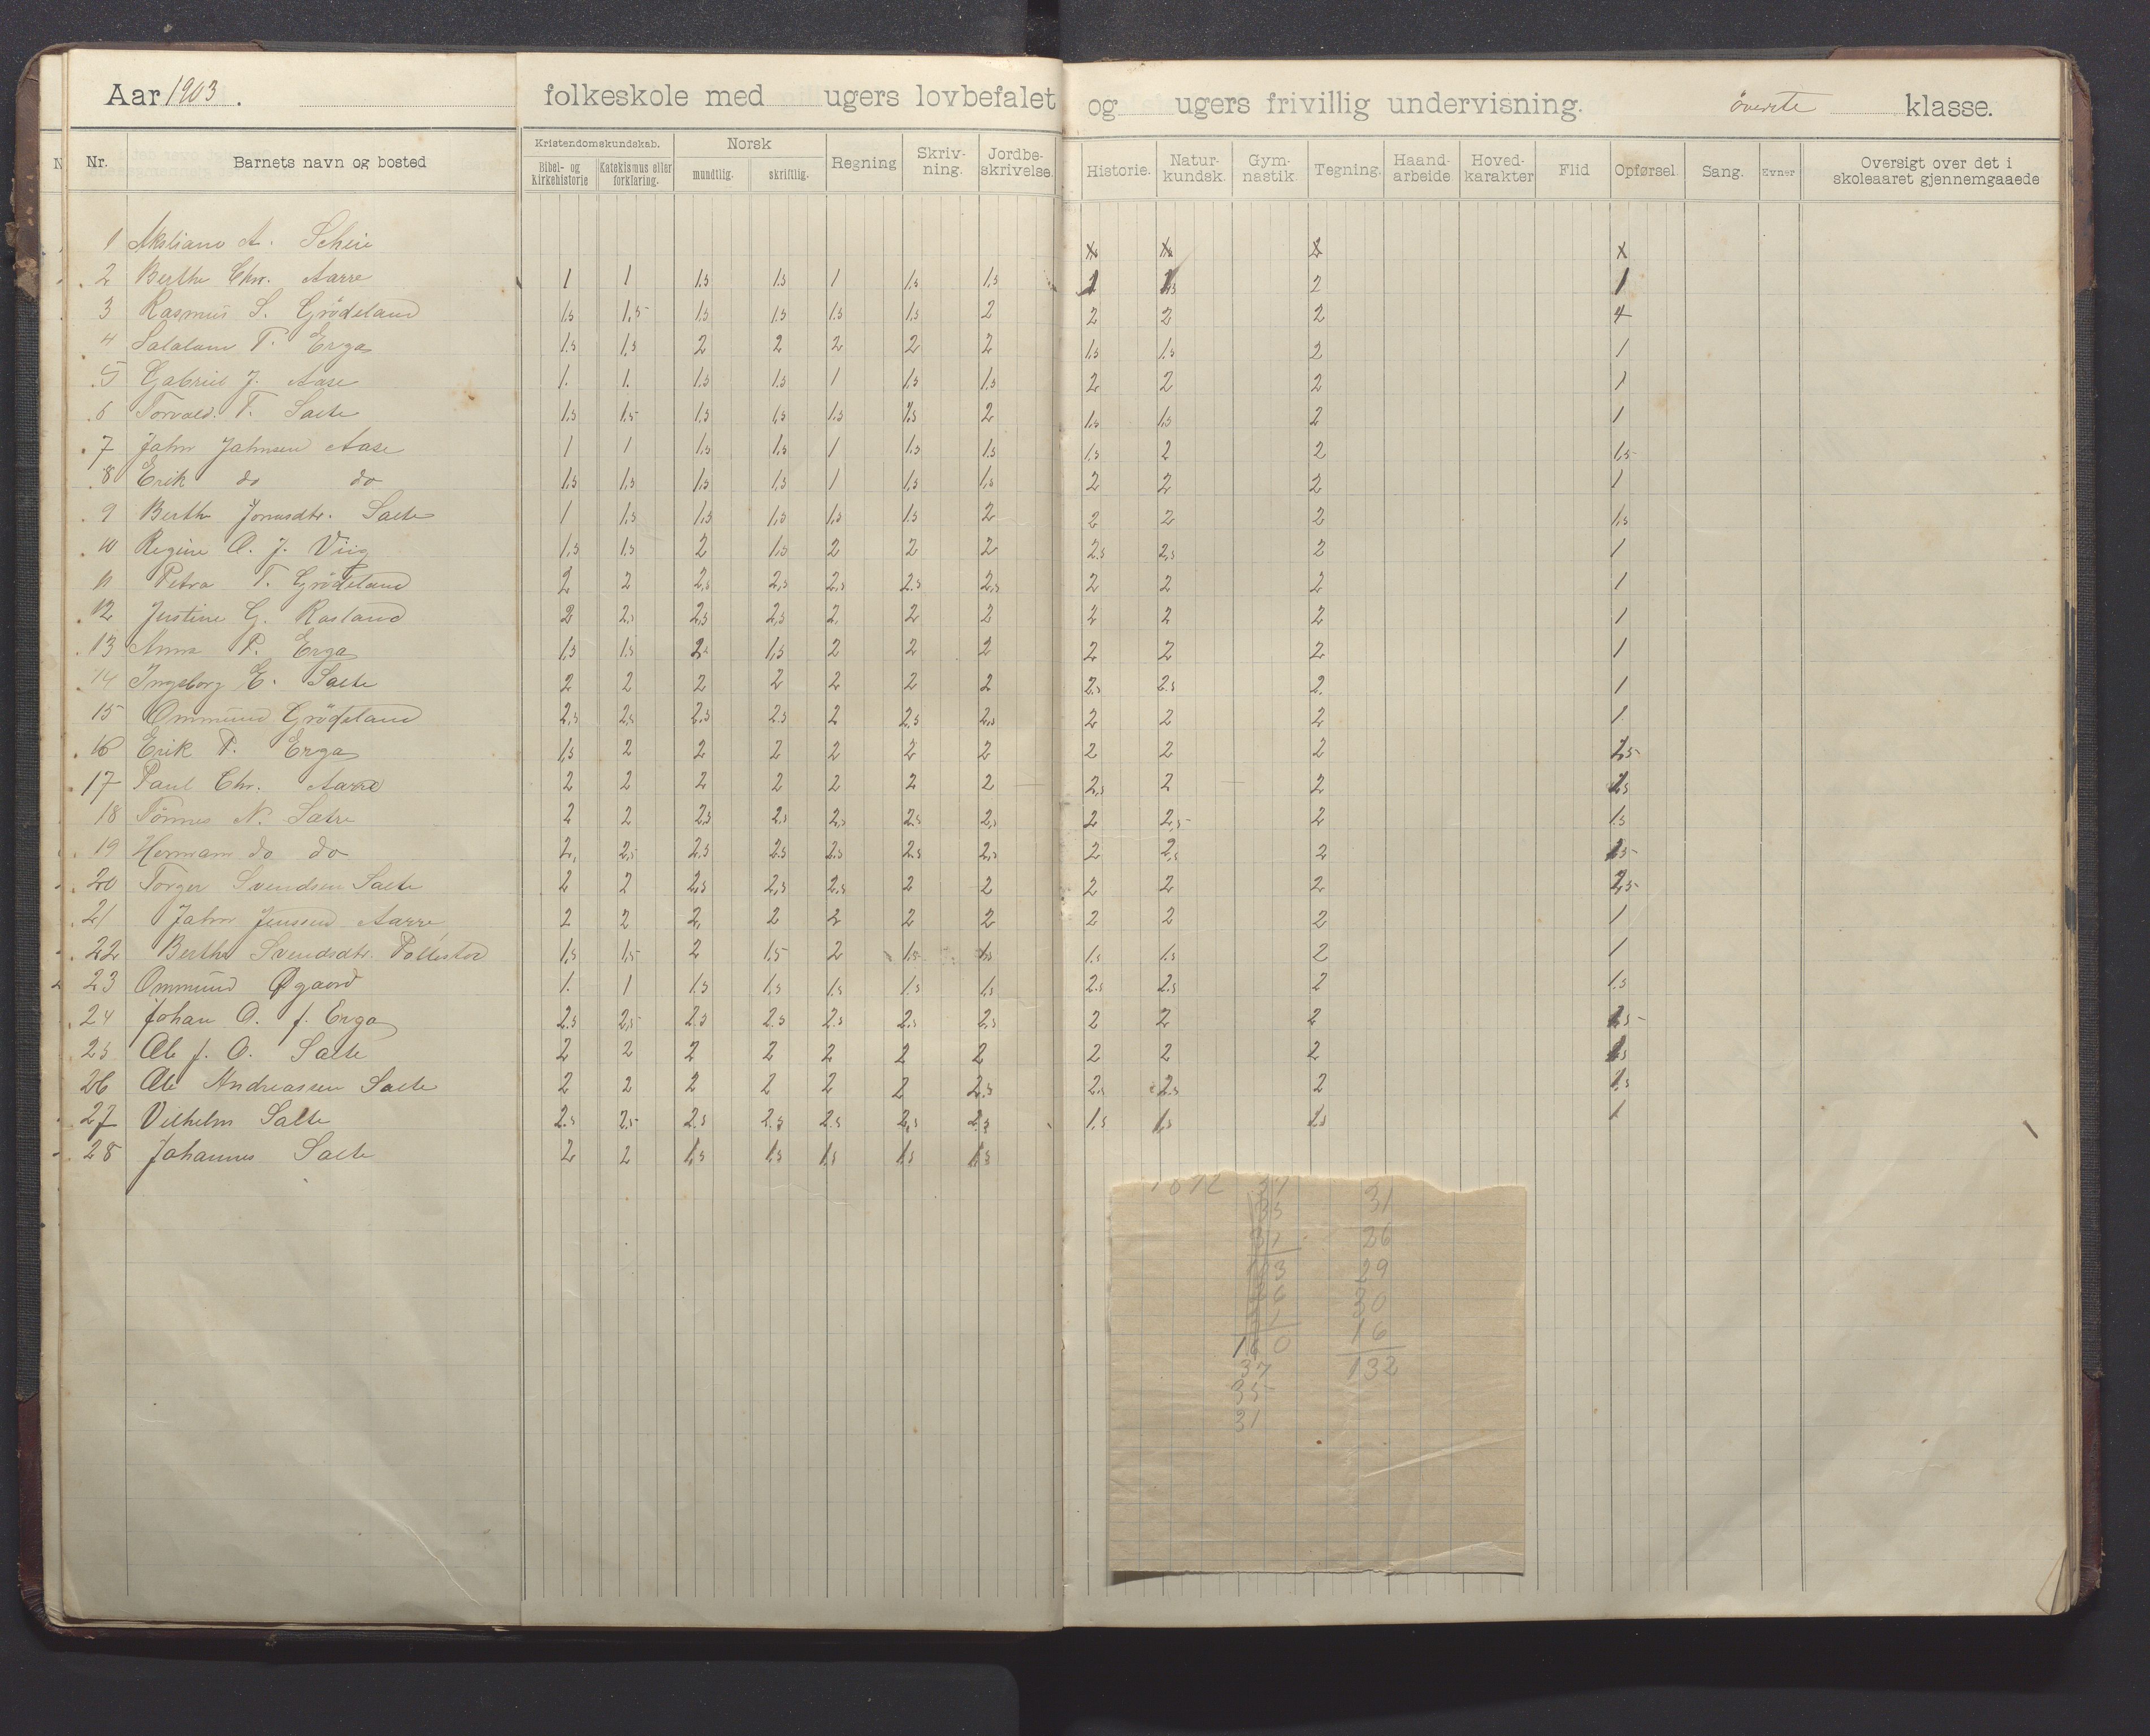 Aar 1903. folkeskole med ugers lovbefalet og ugers frivillig undervisning. øverste klasse.
Nr. Barnets navn og bosted Kristendomskundskab. Bibel- og Kirkehistorie Katekismus eller forklaring. Norsk mundtlig. skriftlig. Regning Skriv-ning. Jordbe-skrivelse. Historie. Natur-kundsk. Gym-nastik. Tegning. Haand-arbeide. Hoved-karakter Flid Opførsel. Sang. Evner Oversigt over det i skoleaaret gjennemgaaede
1 A. x x x x
2 Berthe Chr. Aarre 1 1 1.5 1.5 1 1.5 1,5 1 1,5 2 1
3 Rasmus S. Grödeland 1.5 1,5 1.5 1.5 1.5 1.5 2 2 2 2 4
4 T. Erga 1.5 1,5 2 2 2 2 2 1,5 1.5 2 1
5 Gabriel J. Aase 1. 1. 1.5 1.5 1 1.5 1.5 2 2 2 1
6 Torvald. T. Salte 1.5 1.5 1.5 1,5 1.5 1.5 2 1,5 1,5 2 1
7 Jahn Jahnsen Aase 1 1 1.5 1.5 1 1.5 1.5 1.5 2 2 1,5
8 Erik do do 1.5 1.5 1.5 1.5 1 1.5 1,5 2 2 2 1
9 Berthe Jonasdtr. Salte 1 1.5 1,5 1,5 1,5 1.5 2 2 2 2 1,5
10 Regine O. J. Viig 1,5 1.5 2 1,5 2 2 2 2.5 2,5 2 1
11 Petra T. Grödeland 2 2 2,5 2,5 2,5 2.5 2,5 2 2 2 1
12 Justine G. Rosland 2 2,5 2,5 2,5 2. 2 2 2 2 2 1
13 Anna P. Erga 1,5 1.5 2 1,5 2 2 2 2 2 2 1
14 Ingeborg E. Salte 2 2 2 2 2 2 2 2.5 2.5 2. 1
15 Ommund Grödeland 2,5 2,5 2.5 2.5 2 2.5 2,5 2 2 2 1
16 Erik P. Erga 1,5 2 2 2 2 2 2 2 2 2 2,5
17 Paul Chr. Aarre 2 2 2 2 2 2 2 2,5 2 2
18 Tönnes N. Sætre 2 2 2.5 2.5 2,5 2.5 2,5 2 2,5 2 1.5
19 Herman do do 2, 2,5 2.5 2.5 2.5 2.5 2,5 2 2,5 2 1.5
20 Torger Svendsen Salte 2 2 2,5 2,5 2.5 2 2 2 2 2 2,5
21 Jahn Jenssen Aarre 2 2 2, 2 2 2 2 2 2 2 1
22 Berthe Svendsdtr. Pollestad 1,5 1,5 2 1.5 2 1.5 1.5 1.5 1.5 2 1
23 Ommund Øgaard 1. 1 1.5 1,5 1.5 1.5 1.5 2.5 2.5 2 1.5
24 Johan O. J. Erga 2.5 2,5 2.5 2.5 2.5 2.5 2,5 2 2 2
25 Ole J. O. Salte 2 2 2 2 2 2 2 2 2 2
26 Ole Andreassen Salte 2 2 2 2 2 2 2.5 2.5 2.5 2 1.5
27 Vilhelm Salte 2.5 2.5 2.5 2.5 2.5 2,5 2.5 1.5 1.5 1.5 1
28 Johannes Salte 2 2 1,5 1.5 1.5 1.5 1.5
37 31
35 26
31 29
30
16
132
37
35
31